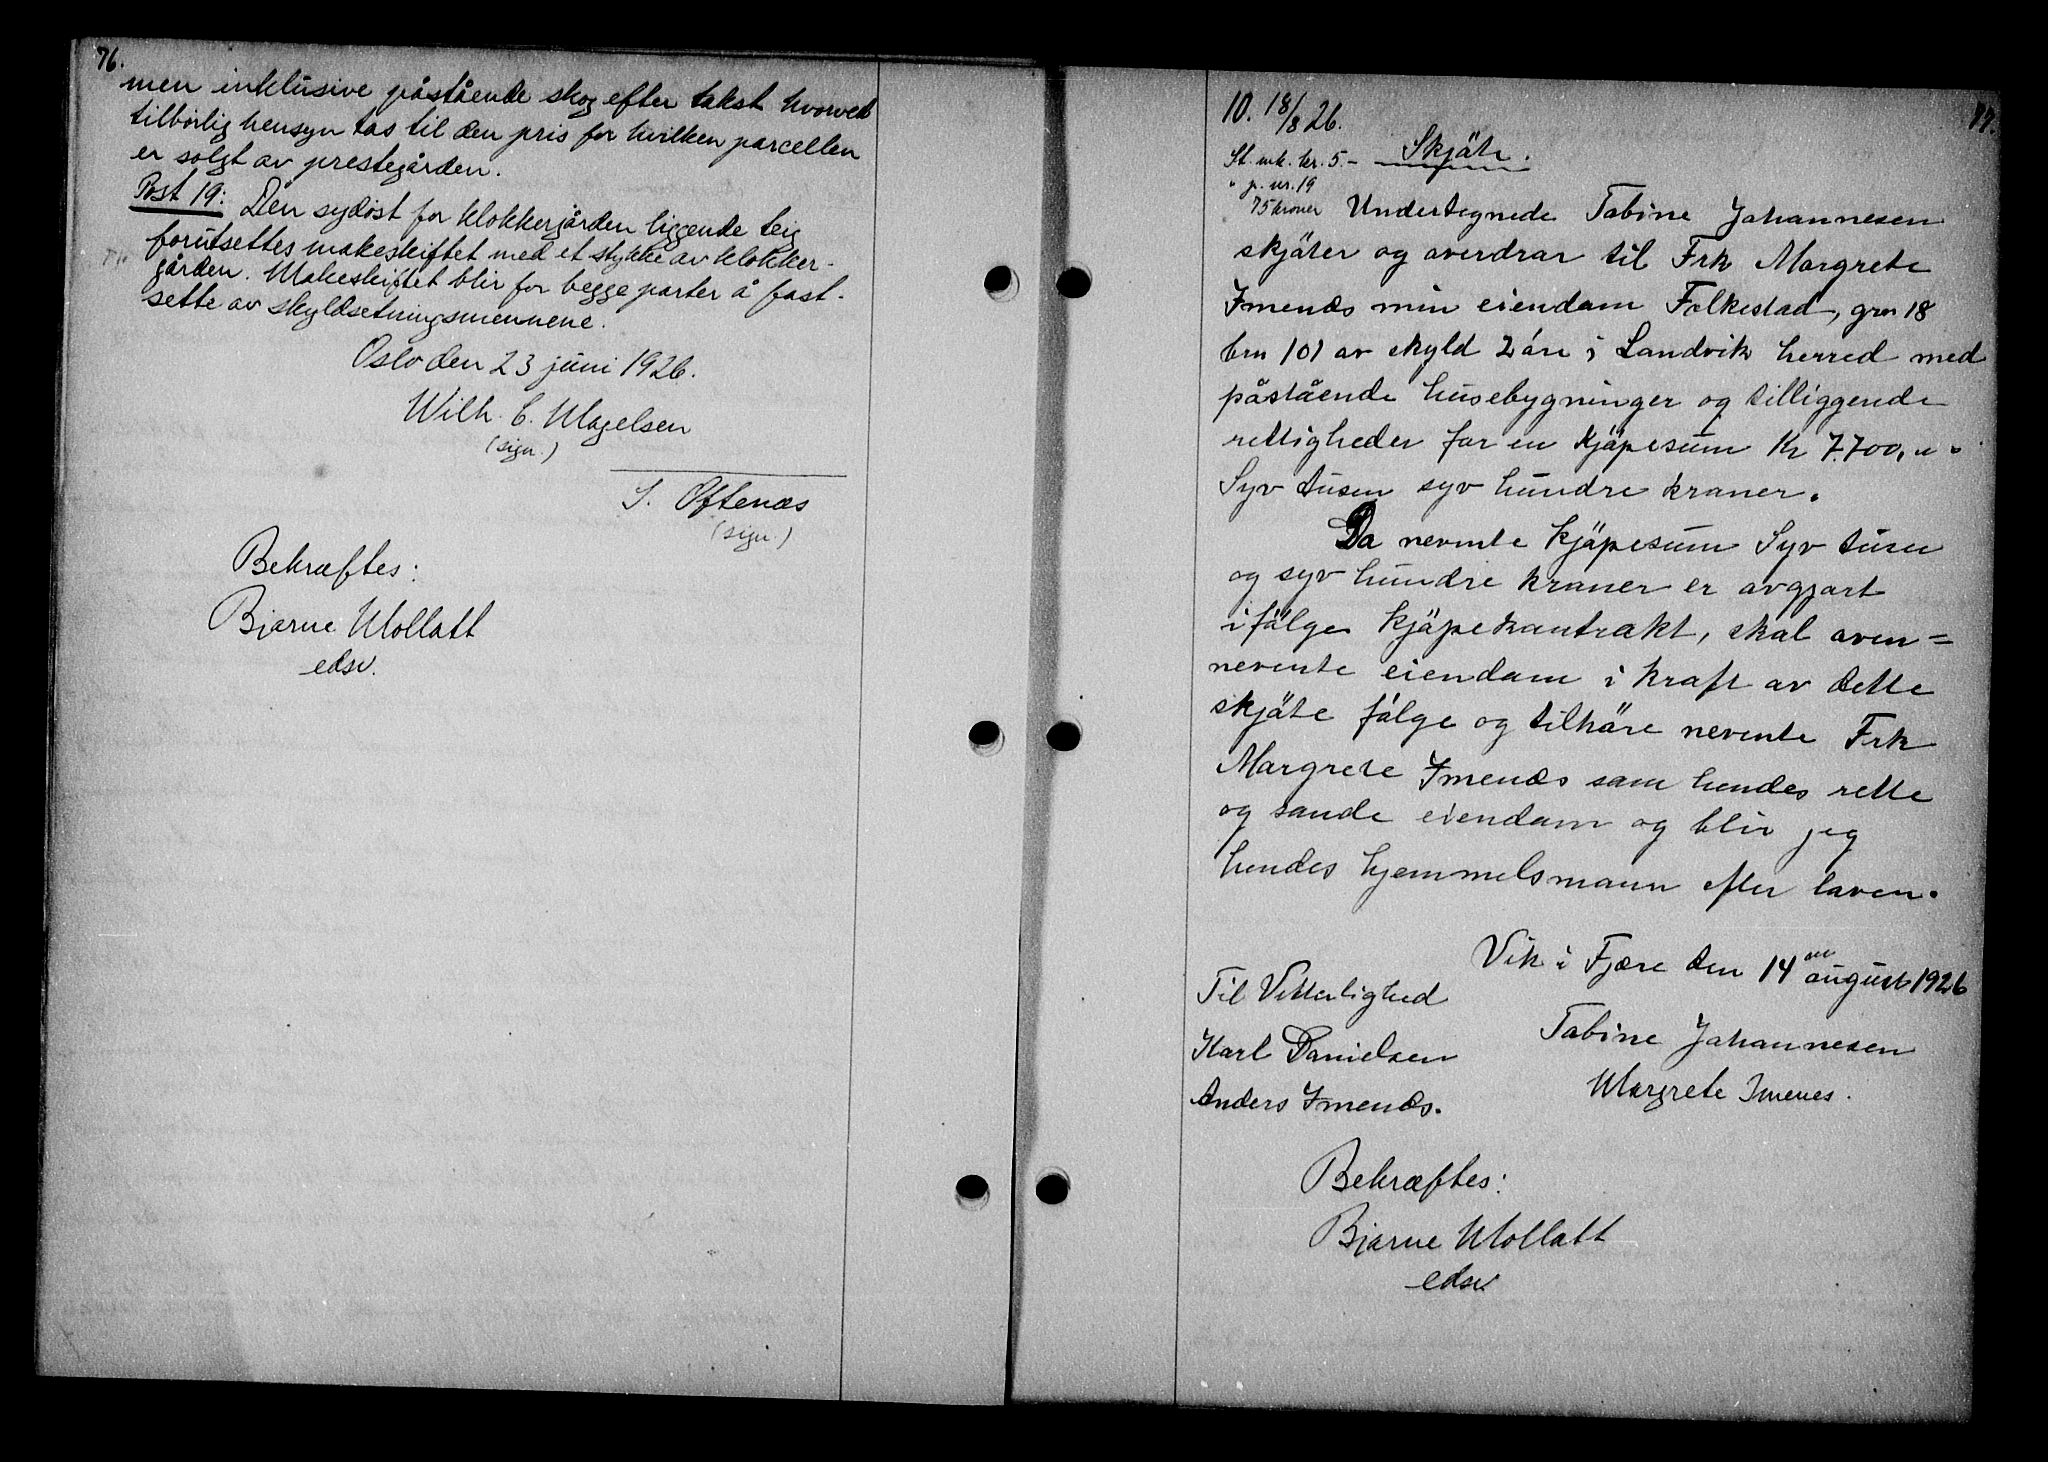 76.
men inklusive påstående skog efter takst hvorved
tilbörlig hensyn tas til den pris for hvilken parcellen
er solgt av prestegården.
Post 19: Den sydöst for klokkergården liggende teig
forutsettes makeskiftet med et stykke av klokker-
gården. Makeskiftet blir for begge parter å fast-
sette av skyldsetningsmennene.
Oslo den 23 juni 1926.
Wilh. C. Magelsen
(sign.)
S. Oftenæs
(sign.)
Bekræftes:
Bjarne Mollatt
edsv.
77.
10. 18/8 26.
St. mk. kr. 5.- Skjäte.
" p. nr. 19
75 kroner Undertegnede Tobine Johannesen
skjäter og overdrar til Frk Margrete
Imenæs min eiendom Folkestad, grn 18
brn 101 av skyld 2 öre i Landvik herred med
påstående husebygninger og tilliggende
rettigheder for en kjöpesum Kr 7.700,
Syv tusen syv hundre kroner.
Da nevnte kjöpesum Syv tusen
og syv hundre kroner er avgjort
ifölge kjöpekontrakt, skal oven=
nevente eiendom i kraft av dette
skjöte fölge og tilhöre nevente Frk
Margrete Imenæs som hendes rette
og sande eiendom og blir jeg
hendes hjemmelsmann efter loven.
Vik i Fjære den 14 august 1926
Til Vitterlighed
Tobine Johannesen
Karl Danielsen
Margrete Imenes.
Anders Imenæs.
Bekræftes:
Bjarne Mollatt
edsv.